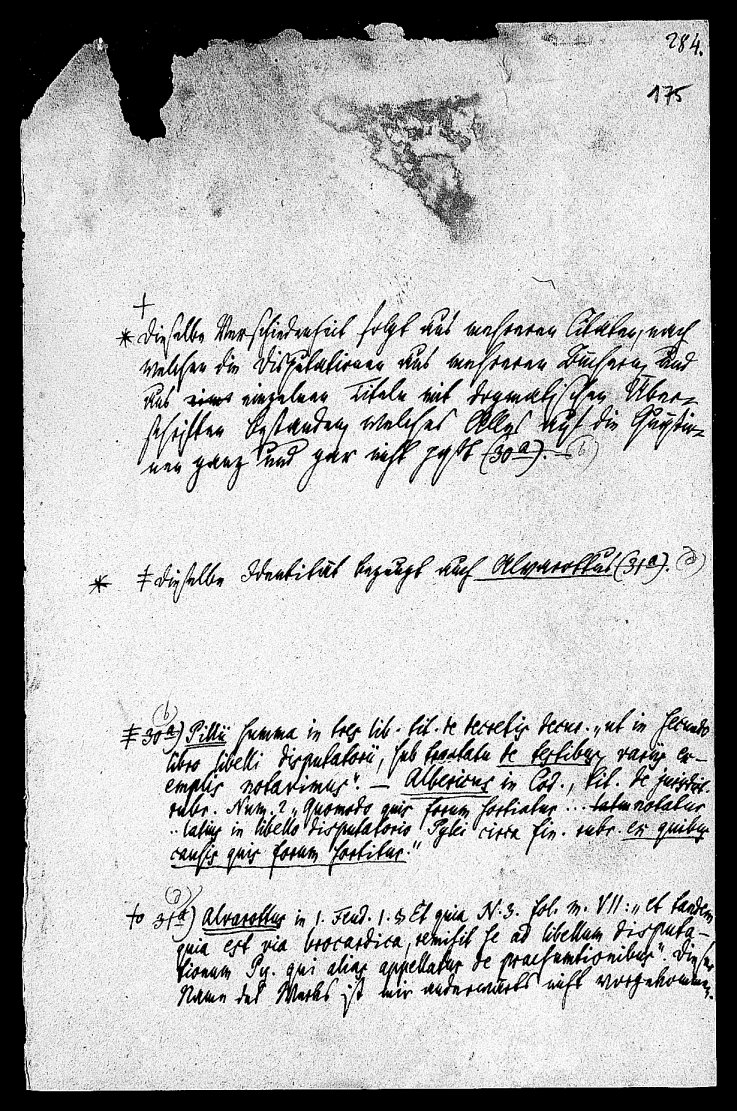 284.
175
+
* Dieselbe Verschiedenheit folgt aus mehreren Citaten, nach
welchen die Disputationen aus mehreren Büchern, und
aus eins einzelnen Titeln mit dogmatischen Über-
schriften bestanden, welches Alles auf die Quästio-
nen ganz und gar nicht paßt (30a). — (b)
* ‡ Dieselbe Identität bezeugt auch Alvarottus (31a). (d)
(b)
‡ 30a) Pillii Summa in tres lib. tit. de decretis decur. „ut in secundo
libro libelli disputatorii, sub tractatu de testibus variis ex-
emplis notavimus“. — Albericus in Cod., tit. de jurisdict.
rubr. Num. 2 „Quomodo quis forum sortiatur ... notatur
.. latius in libello disputatorio Pylei circa fin. rubr. ex quibus
causis quis forum sortitur.“
(d)
to 31a) Alvarottus in 1. Feud. 1. § Et quia N. 3. fol. m. VII: „et tandem
quia est via brocardica, remisit se ad libellum disputa-
tionum Py. qui alias appellatur de praesumtionibus“. Dieser
Name des Werks ist mir anderwärts nicht vorgekommen.